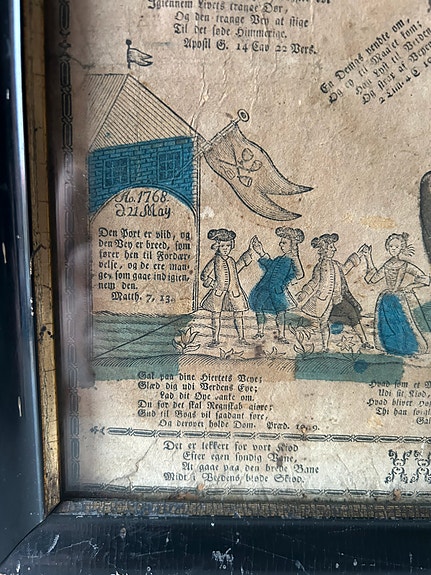 Igiennem Livets trange Dør,
Og den trange Vey at stige
Til det søde Himmerige.
Apost G. 14 Cap 22 Vers.
En Demas vendte om,
No. 1768.
d 21 May
Den Port er viid, og
den Vey er breed, som
fører hen til Fordær-
velse, og de ere man-
ge, som gaae indigien-
nem den.
Matth. 7, 13.
Gak paa dine Hiertets Veye;
Glæd dig udi Verdens Eye;
Lad dit Øye vanke om.
Du for det skal Regnskab giøre;
Gud til Bogs vil saadant føre,
Og derover holde Dom. Præd. 11,9.
Hvad som et
Udi sit Kiød,
Hvad bliver
Thi han
Gal
Det er lekkert for vort Kiød
Efter egen syndig Vane,
At gaae paa den brede Bane
Midt i Verdens bløde Skiød.